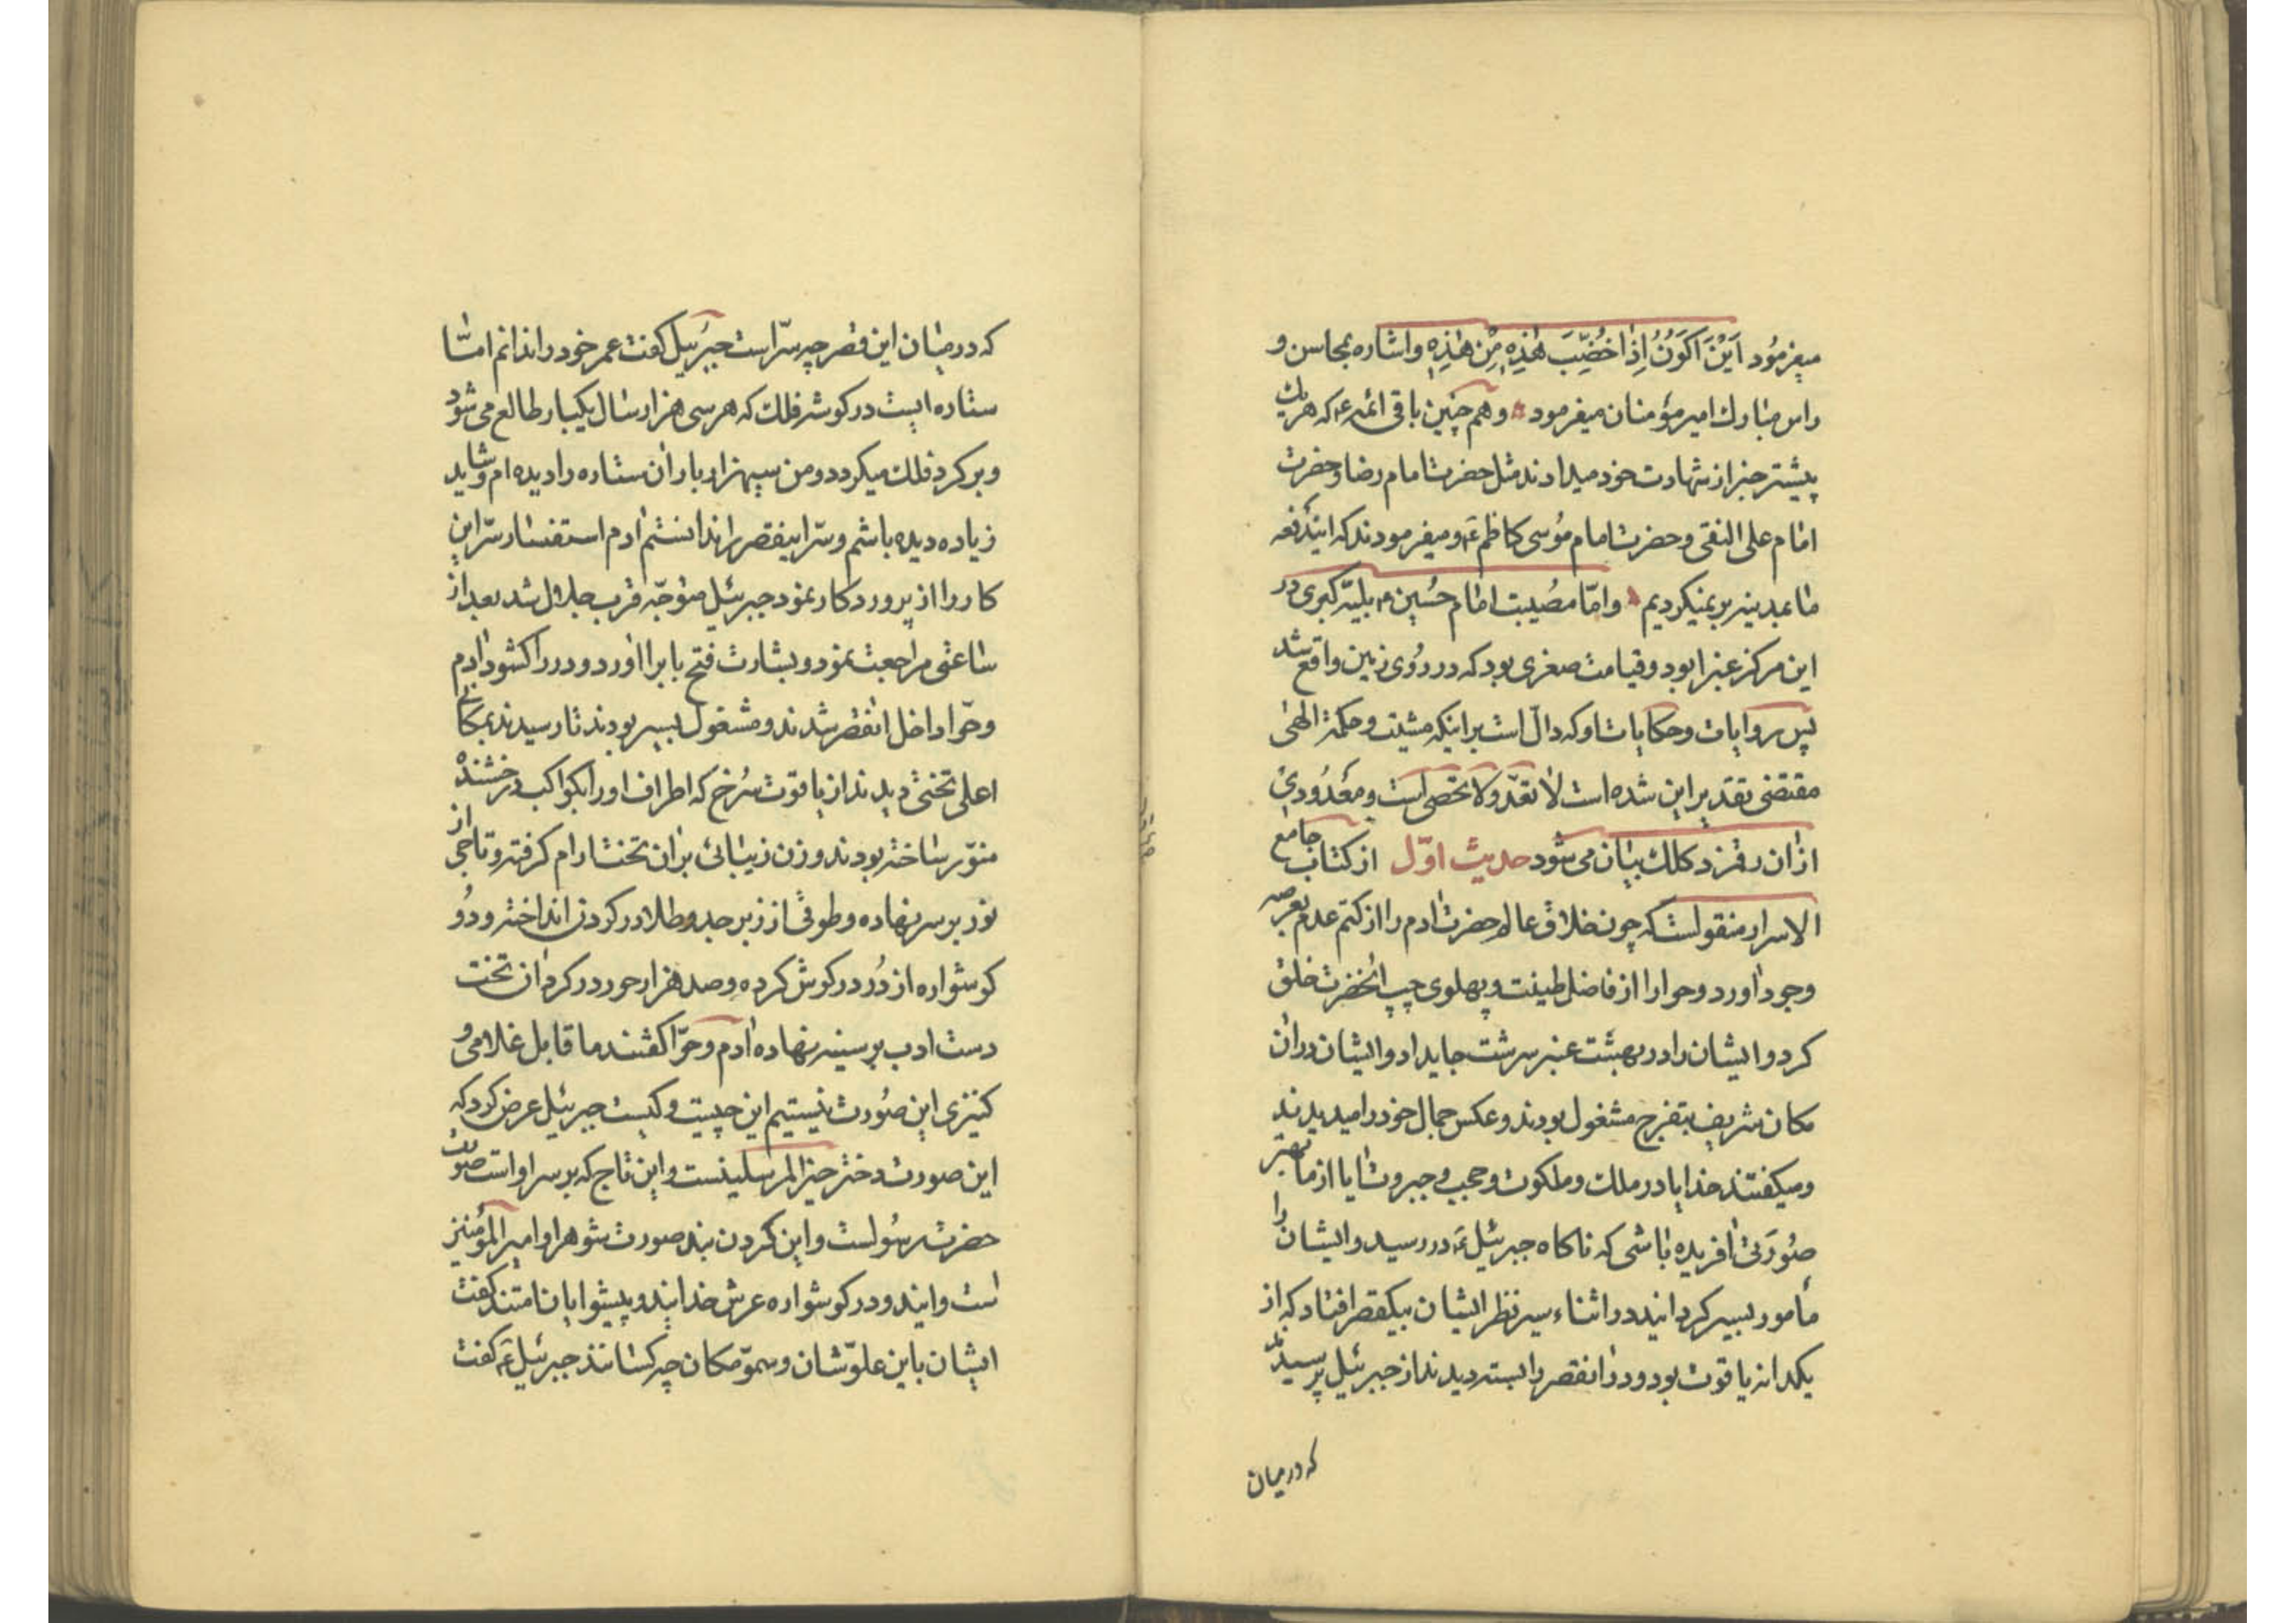 میفرمُود اَیْنَ اَکوُنُ اِذٰا خُضِّبَ هٰذِهِ مِنْ هٰذِهِ واشاره بمحاسن و
راس مبارك امیر مؤمنان میفرمود وهم چنین باقی ائمه ع که هریك
پیشتر خبر از شهادت خود میدادند مثل حضرت امام رضا و حضرت
امام علی النقی و حضرت امام مُوسی کاظم ع و میفرمودند که ایندفعه
ما بمدینه بر نمیکردیم وامّا مصُیبت امام حُسین ع بلیّه کبری در
این مرکز غبرا بود و قیامت صغری بود که در رُوی زمین واقع شد
پس روایات و حکایات او که دالّ است بر اینکه مشیّت و حکمة الهی
مقتضی تقدیر این شده است لا تعدّ ولا تحصی است و معُدُودی
ازان رقمزد کلك بیان می شود حدیث اوّل از کتاب جامع
الاسرار منقولست که چون خلاق عالم حضرت ادم را از کتم عدم بعرصه
وجود اورد و حوا را از فاضل طینت و پهلوی چپ انحضرت خلق
کرد و ایشان را در بهشت عنبر سرشت جایداد و ایشان دران
مکان شریف بتفرج مشغول بودند و عکس جمال خود را میدیدند
و میکفتند خدایا در ملك و ملکوت و حجب و جبروت ایا از ما بهتر
صُورَتی افریده باشی که ناکاه جبرئیل ع در رسید و ایشان را
مأمور بسیر کردانید در اثناء سیر نظر ایشان بیکقصر افتاد که از
یکدانه یاقوت بود و در انقصر را بسته دیدند از جبرئیل پرسیدند
که در میان
که در میان این قصر چه سرّ است جبرئیل کفت عمر خود را ندانم امّا
ستاره ایست در کوشه فلك که هر سی هزار سال یکبار طالع می شود
و بر کرد فلك میکردد و من سیهزار بار ان ستاره را دیده ام و شاید
زیاده دیده باشم و سرّ اینقصر را ندانستم ادم استفسار سرّ این
کار را از پروردکار نمود جبرئیل متوجّه قرب جلال شد بعد از
ساعتی مراجعت نمود و بشارت فتح باب را اورد و در را کشود ادم
و حوّا داخل انقصر شدند و مشغول بسیر بودند تا رسیدند بمکانی
اعلی تختی دیدند از یاقوت سُرخ که اطراف او را بکواکب درخشنده
منوّر ساخته بودند و زن زیبائی بران تخت ارام کرفته و تاجی از
نور بر سر نهاده و طوقی از زبرجد و طلا در کردن انداخته و دُو
کوشواره از دُر در کوش کرده و صد هزار حور در کرد ان تخت
دست ادب بر سینه نهاده ادم و حوّا کفتند ما قابل غلامی و
کنیزی این صُورت نیستیم این چیست و کیست جبرئیل عرض کرد که
این صورت دختر خیر المرسلینست و این تاج که بر سر او است صورت
حضرت رسُولست و این کردن بند صورت شوهر او امیر المؤمنین
است و ایندو در کوشواره عرش خدایند و پیشوایان امتند کفت
ایشان باین علوّ شان و سموّ مکان چه کسانند جبرئیل ع کفت